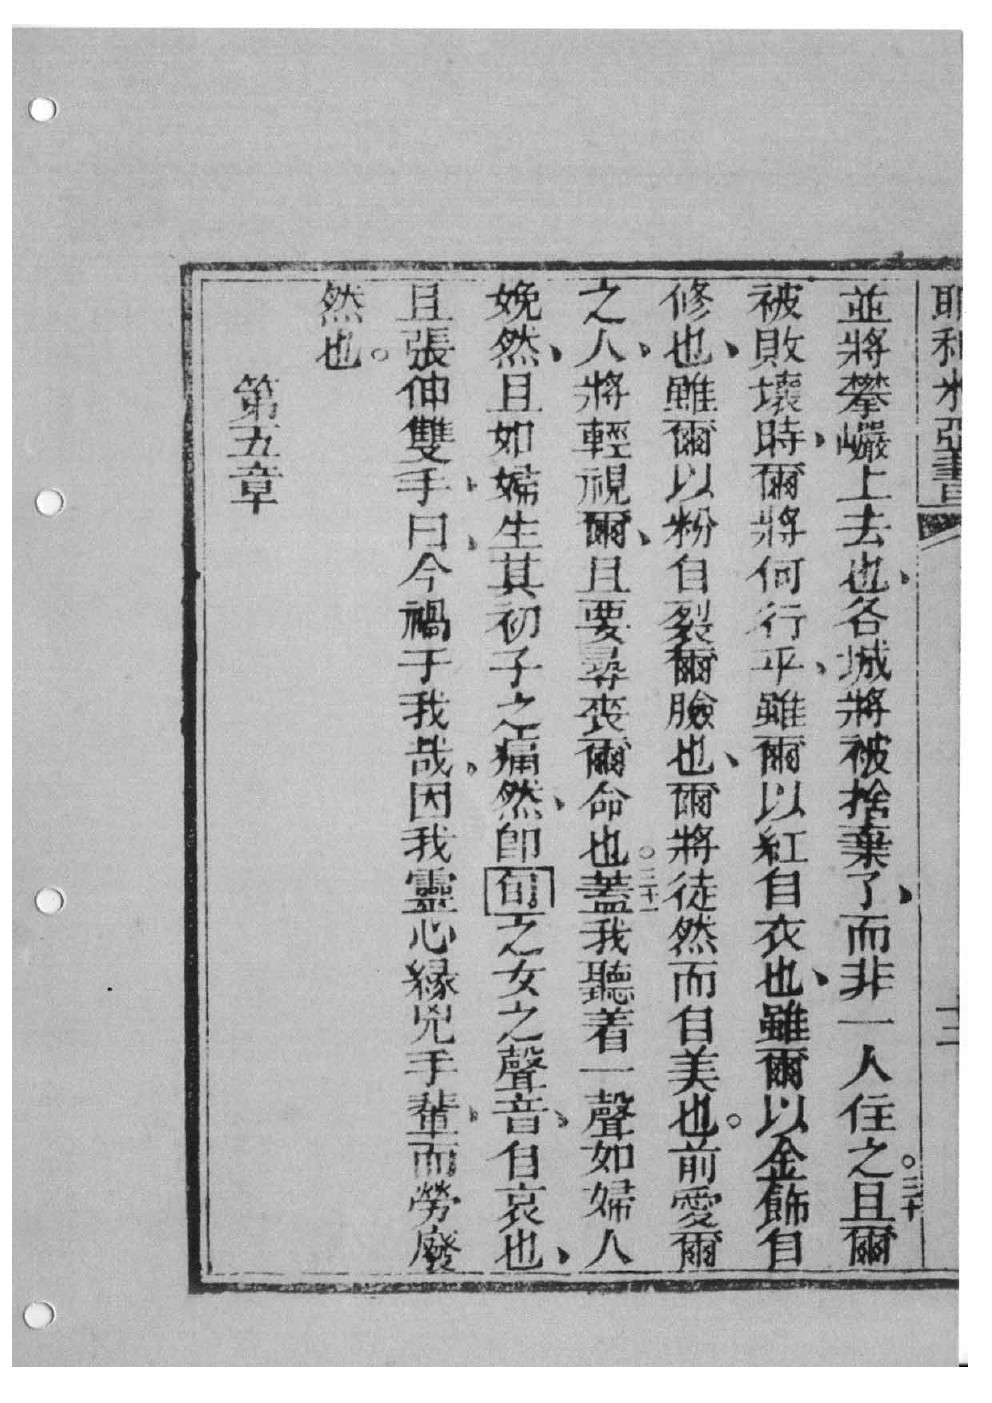 耶利米亞書 十二
並將攀巗上去也、各城將被捨棄了、而非一人住之。三十且爾
被敗壞時、爾將何行乎、雖爾以紅自衣也、雖爾以金飾自
修也、雖爾以粉自裂爾臉也、爾將徒然而自美也。前愛爾
之人、將輕視爾、且要尋喪爾命也。三十一蓋我聽着一聲如婦人
娩然、且如婦生其初子之痛然、卽旬之女之聲音、自哀也、
且張伸雙手、曰、今禍于我哉。因我靈心緣兇手輩、而勞廢
然也。
第五章